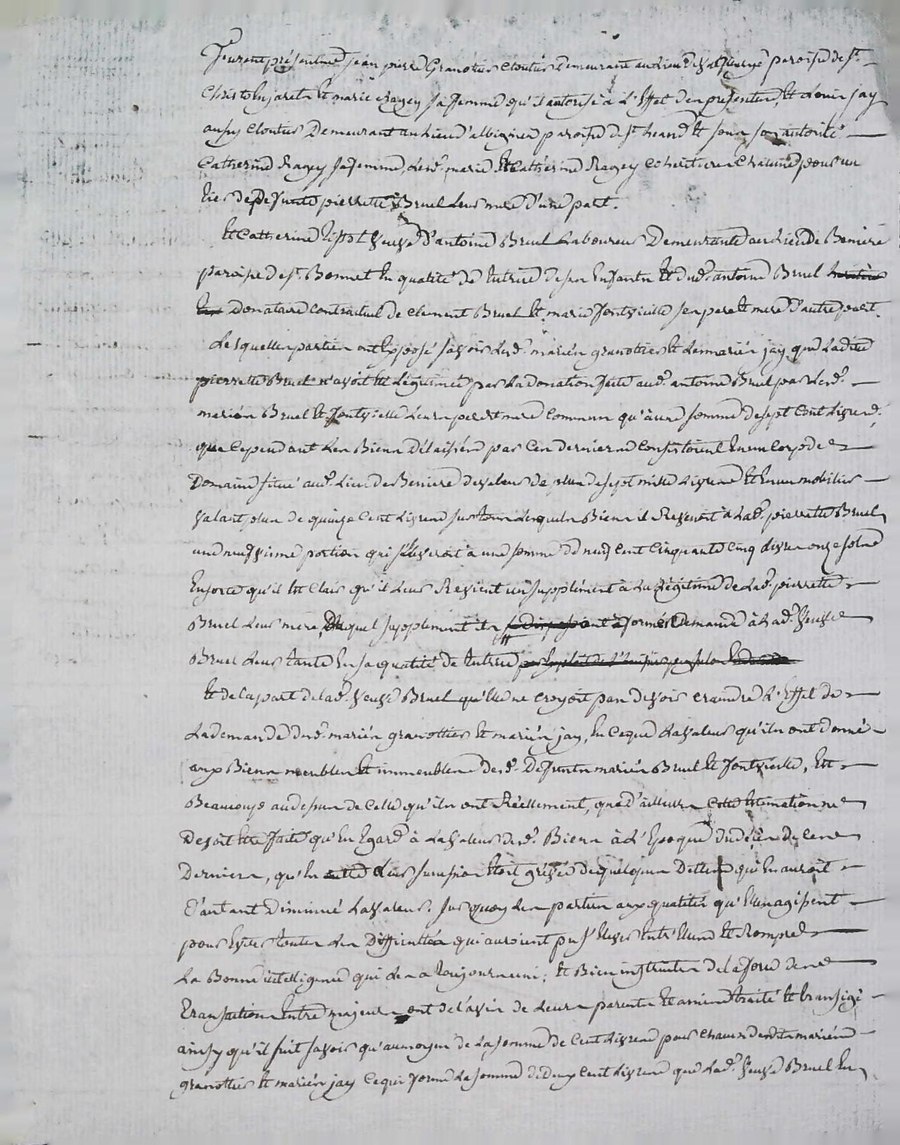 Furent présentes jean pierre Granotier Cloutier demeurant au lieu de paroisse de St.
Christo en jarets Et marie Ragey sa femme qu'il autorise à L'Effet des presentes, Et Louis jay
aussy Cloutier Demeurant au lieu d'albigieu paroisse de St. heand Et sous son autorité
Catherine Ragey sa femme, Lesd. marie Et Catherine Ragey Coheritieres Chacune pour un
tier de Defunte pierrette Bruel Leur mere d'une part.
Et Catherine veuve d'antoine Bruel Laboureur Demeurante au lieu de Beniere
paroisse de St. Bonnet En qualité de tutrice de ses Enfants Et dud. antoine Bruel heritier
donataire Contractuel de Clement Bruel Et marie fontvieille ses pere Et mere D'autre part.
Lesquelles parties ont Exposé, savoir Lesd. mariés granottier Et Les mariés jay, que Ladite
pierrette Bruel n'avoit été Légitimée par La donation faite aud. antoine Bruel par Lesd.
mariés Bruel Et fontvieille Leurs pere Et mere Communs qu'à une somme de sept Cent Livres,
que Cependant Les Biens Délaissés par Ces derniers Consistoient En un Corps de
Domaine situé aud. Lieu de Beniere de valeur de plus de sept mille Livres Et En un mobilier
valant plus de quinze Cent Livres sur tous Lesquels Biens il Revenoit à Lad. pierrette Bruel
une neuvieme portion qui s'élèveroit à une somme de neuf Cent Cinquante Cinq Livres onze sols
Ensorte qu'il Est Clair qu'il Leur Revient un supplément à La Légitime de Lad. pierrette
Bruel Leur mere, Duquel supplément ils se disposoient à former Demande à Lad. veuve
Bruel Leur tante En sa qualité de tutrice
Et de la part de lad. veuve Bruel qu'elle ne croyoit pas devoir craindre L'Effet de
La demande desd. mariés granottier Et mariés jay, En Ce que La valeur qu'ils ont donné
aux Biens meubles Et immeubles desd. Defunts mariés Bruel Et fontvieille, Est
Beaucoup au dessus de Celle qu'ils ont Réellement, que d'ailleurs Cette Estimation ne
Devoit être faite qu'En Egard à La valeur desd. Biens à L'Epoque du décès de Ces
Derniers, qu'En Leur succession étoit grévée de quelques Dettes qui En auroit
D'autant Diminué La valeur. Sur quoy Les parties aux qualités qu'Elles agissent
pour Eviter toutes Les Difficultés qui auroient pu s'Elever Entr'Elles Et Rompre
La Bonne intelligence qui Les a toujours uni; Et Bien instruites de la force des
transactions Entre majeurs ont de l'avis de Leurs parents Et amis traité Et transigé
ainsy qu'il suit savoir qu'au moyen de La somme de Cent Livres pour Chacun desdits mariés
granottier Et mariés jay Ce qui forme La somme de Deux Cent Livres que Lad. veuve Bruel En